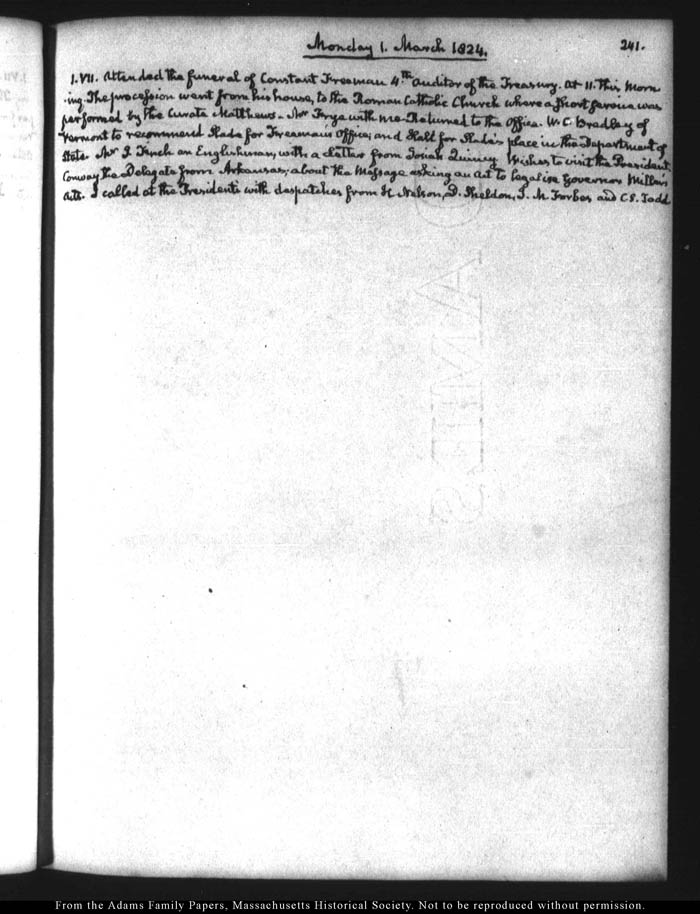 Monday 1. March 1824.
241.
1. VII. Attended the funeral of Constant Freeman 4th Auditor of the Treasury. At 11. This morn
-ing. The procession went from his house, to the Roman Catholic Church where a short service was
performed by the Curate Matthews. Mr Frye with me. Returned to the Office. W. C. Bradley of
Vermont to recommend Slade for Freeman's Office; and Hall for Slade's place in the Department of
State. Mr I. Finch an Englishman, with a letter from Josiah Quincy. Wishes to visit the President.
Conway the Delegate from Arkansas; about the Message asking an act to legalise Governor Miller's
Acts. I called at the President's with despatches from H. Nelson, D. Sheldon, J. M. Forbes and C. S. Todd
From the Adams Family Papers, Massachusetts Historical Society. Not to be reproduced without permission.